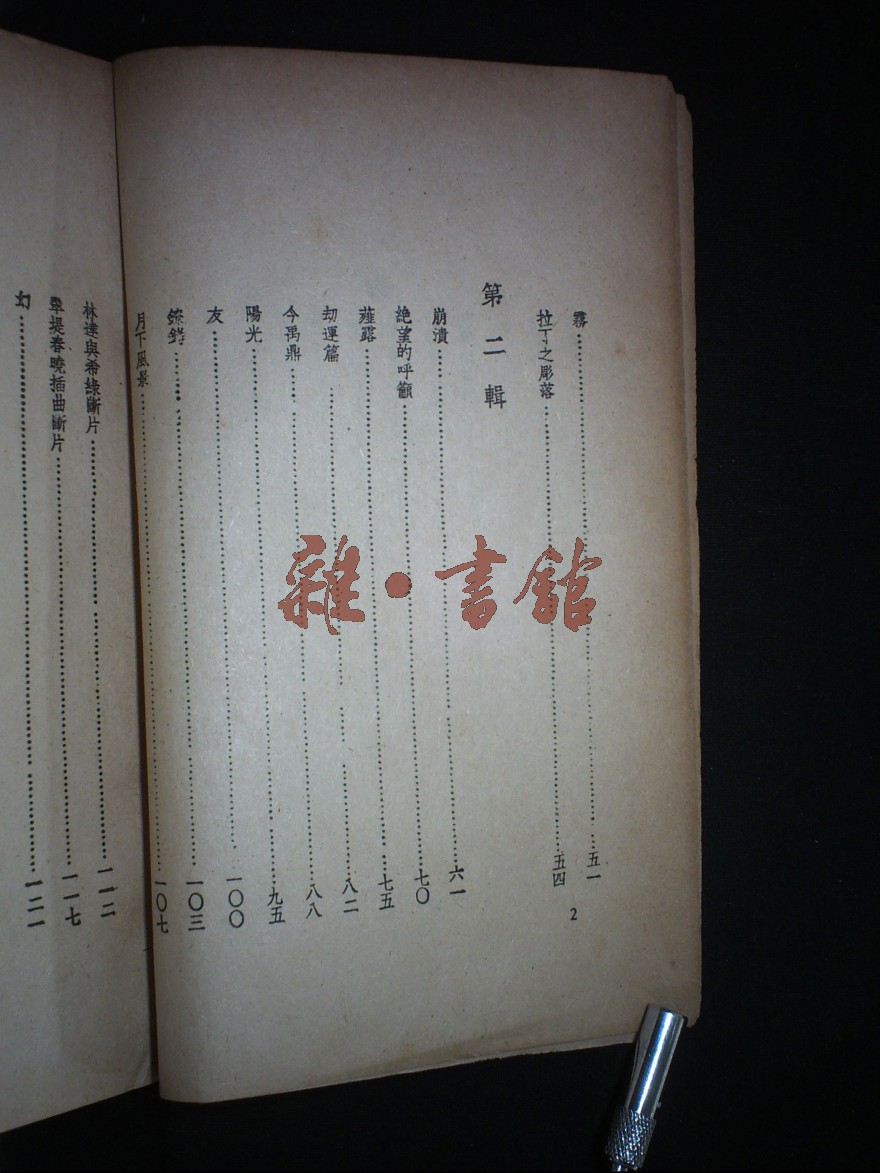 霧……五一
拉丁之彫落……五四
第二輯
崩潰……六一
絶望的呼籲……七〇
薤露……七五
劫運篇……八二
今禹鼎……八八
陽光……九五
友……一〇〇
鐐銬……一〇三
月下風景……一〇七
林達與希綠斷片……一一二
翠堤春曉插曲斷片……一一七
幻……一二一
2
雜·書舘